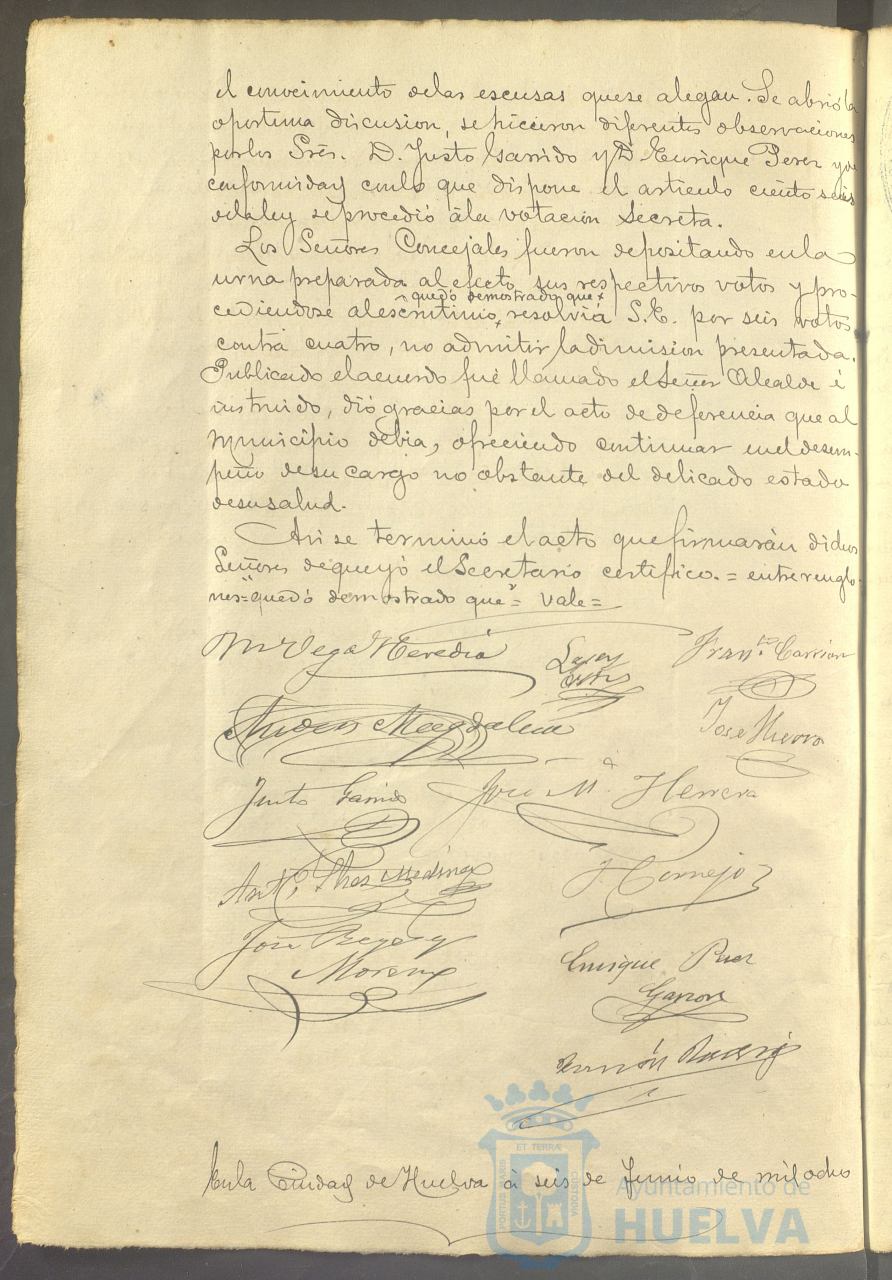 el conocimiento delas escusas quese alegan. Se abrió la
oportuna discusion, se hicieron diferentes observaciones
porlos Sres. D. Justo Garrido y D. Enrique Perez y de
conformidad conlo que dispone el articulo ciento seis
delaley se procedió ála votacion secreta.
Los Señores Concejales fueron depositando enla
urna preparada al efecto sus respectivos votos y pro-
quedó demostrado que
cediendose alescrutinio, resolvia S.E. por seis votos
contra cuatro, no admitir ladimision presentada.
Publicado elacuerdo fué llamado el Señor Alcalde é
instruido, dió gracias por el acto de deferencia que al
municipio debia, ofreciendo continuar enel desem-
peño desu cargo no obstante del delicado estado
desusalud.
Asi se terminó el acto que firmarán dichos
Señores dequeyó el Secretario certifico. = entrerenglo-
nes="quedó demostrado que"= Vale=
M Vega Heredia
Franco. Carrion
Magdalena
Jose Hierro
Justo Garrido
Jose Ma. Herrera
Anto. Thos Medina
J Cornejo
Jose Reyes y
Moreno
Enrique Perez
Garzon
Ramón
ET TERRA
PORTUS MARIS
CUSTODIA
Enla Ciudad de Huelva á seis de Junio de mil ocho
Ayuntamiento de
HUELVA